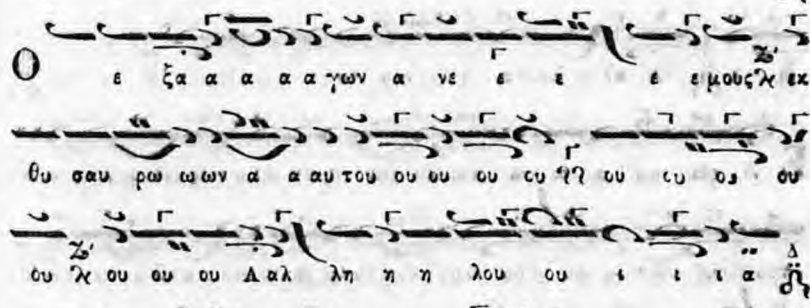 Ο ε ξα α α α α γων α νε ε ε ε ε μους εκ
θυ σαυ ρω ω ων α α αυ του ου ου ου ου ου ου ου ου
ου ου ου ου Α αλ λη η η λου ου ι ι ι α